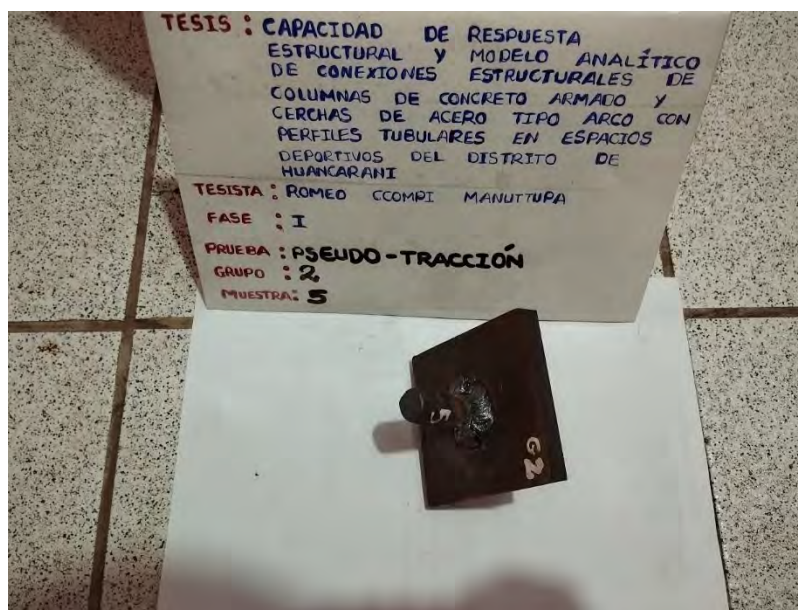 TESIS : CAPACIDAD DE RESPUESTA
ESTRUCTURAL Y MODELO ANALÍTICO
DE CONEXIONES ESTRUCTURALES DE
COLUMNAS DE CONCRETO ARMADO Y
CERCHAS DE ACERO TIPO ARCO CON
PERFILES TUBULARES EN ESPACIOS
DEPORTIVOS DEL DISTRITO DE
HUANCARANI
TESISTA : ROMEO CCOMPI MANUTTUPA
FASE : I
PRUEBA : PSEUDO-TRACCIÓN
GRUPO : 2
MUESTRA : 5
5
G2